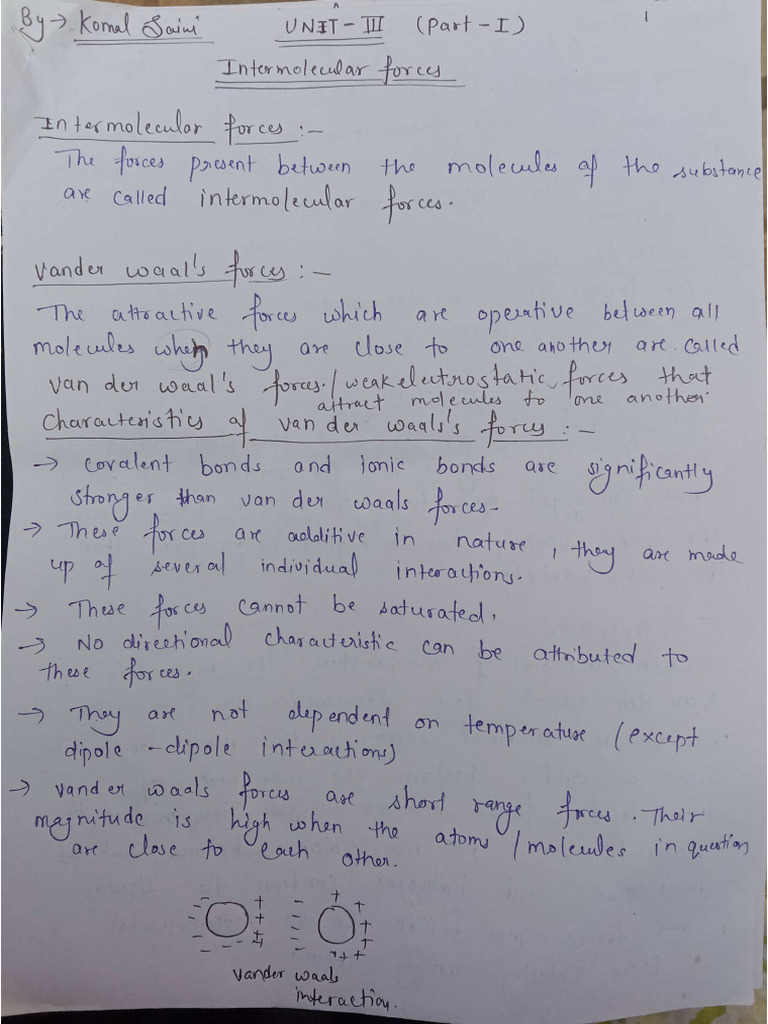 By → Komal Saini UNIT - III (Part - I) 1
Intermolecular forces
Intermolecular forces :-
The forces present between the molecules of the substance
are called intermolecular forces.
Vander waal's forces :-
The attractive forces which are operative between all
molecules when they are close to one another are called
van der waal's forces./weak electrostatic forces that
attract molecules to one another.
Characteristics of van der waals's forces :-
→ Covalent bonds and ionic bonds are significantly
stronger than van der waals forces.
→ These forces are additive in nature, they are made
up of several individual interactions.
→ These forces cannot be saturated.
→ No directional characteristic can be attributed to
these forces.
→ They are not dependent on temperature (except
dipole-dipole interactions)
→ Vander waals forces are short range forces. Their
magnitude is high when the atoms/molecules in question
are close to each other.
Vander waals
interaction.